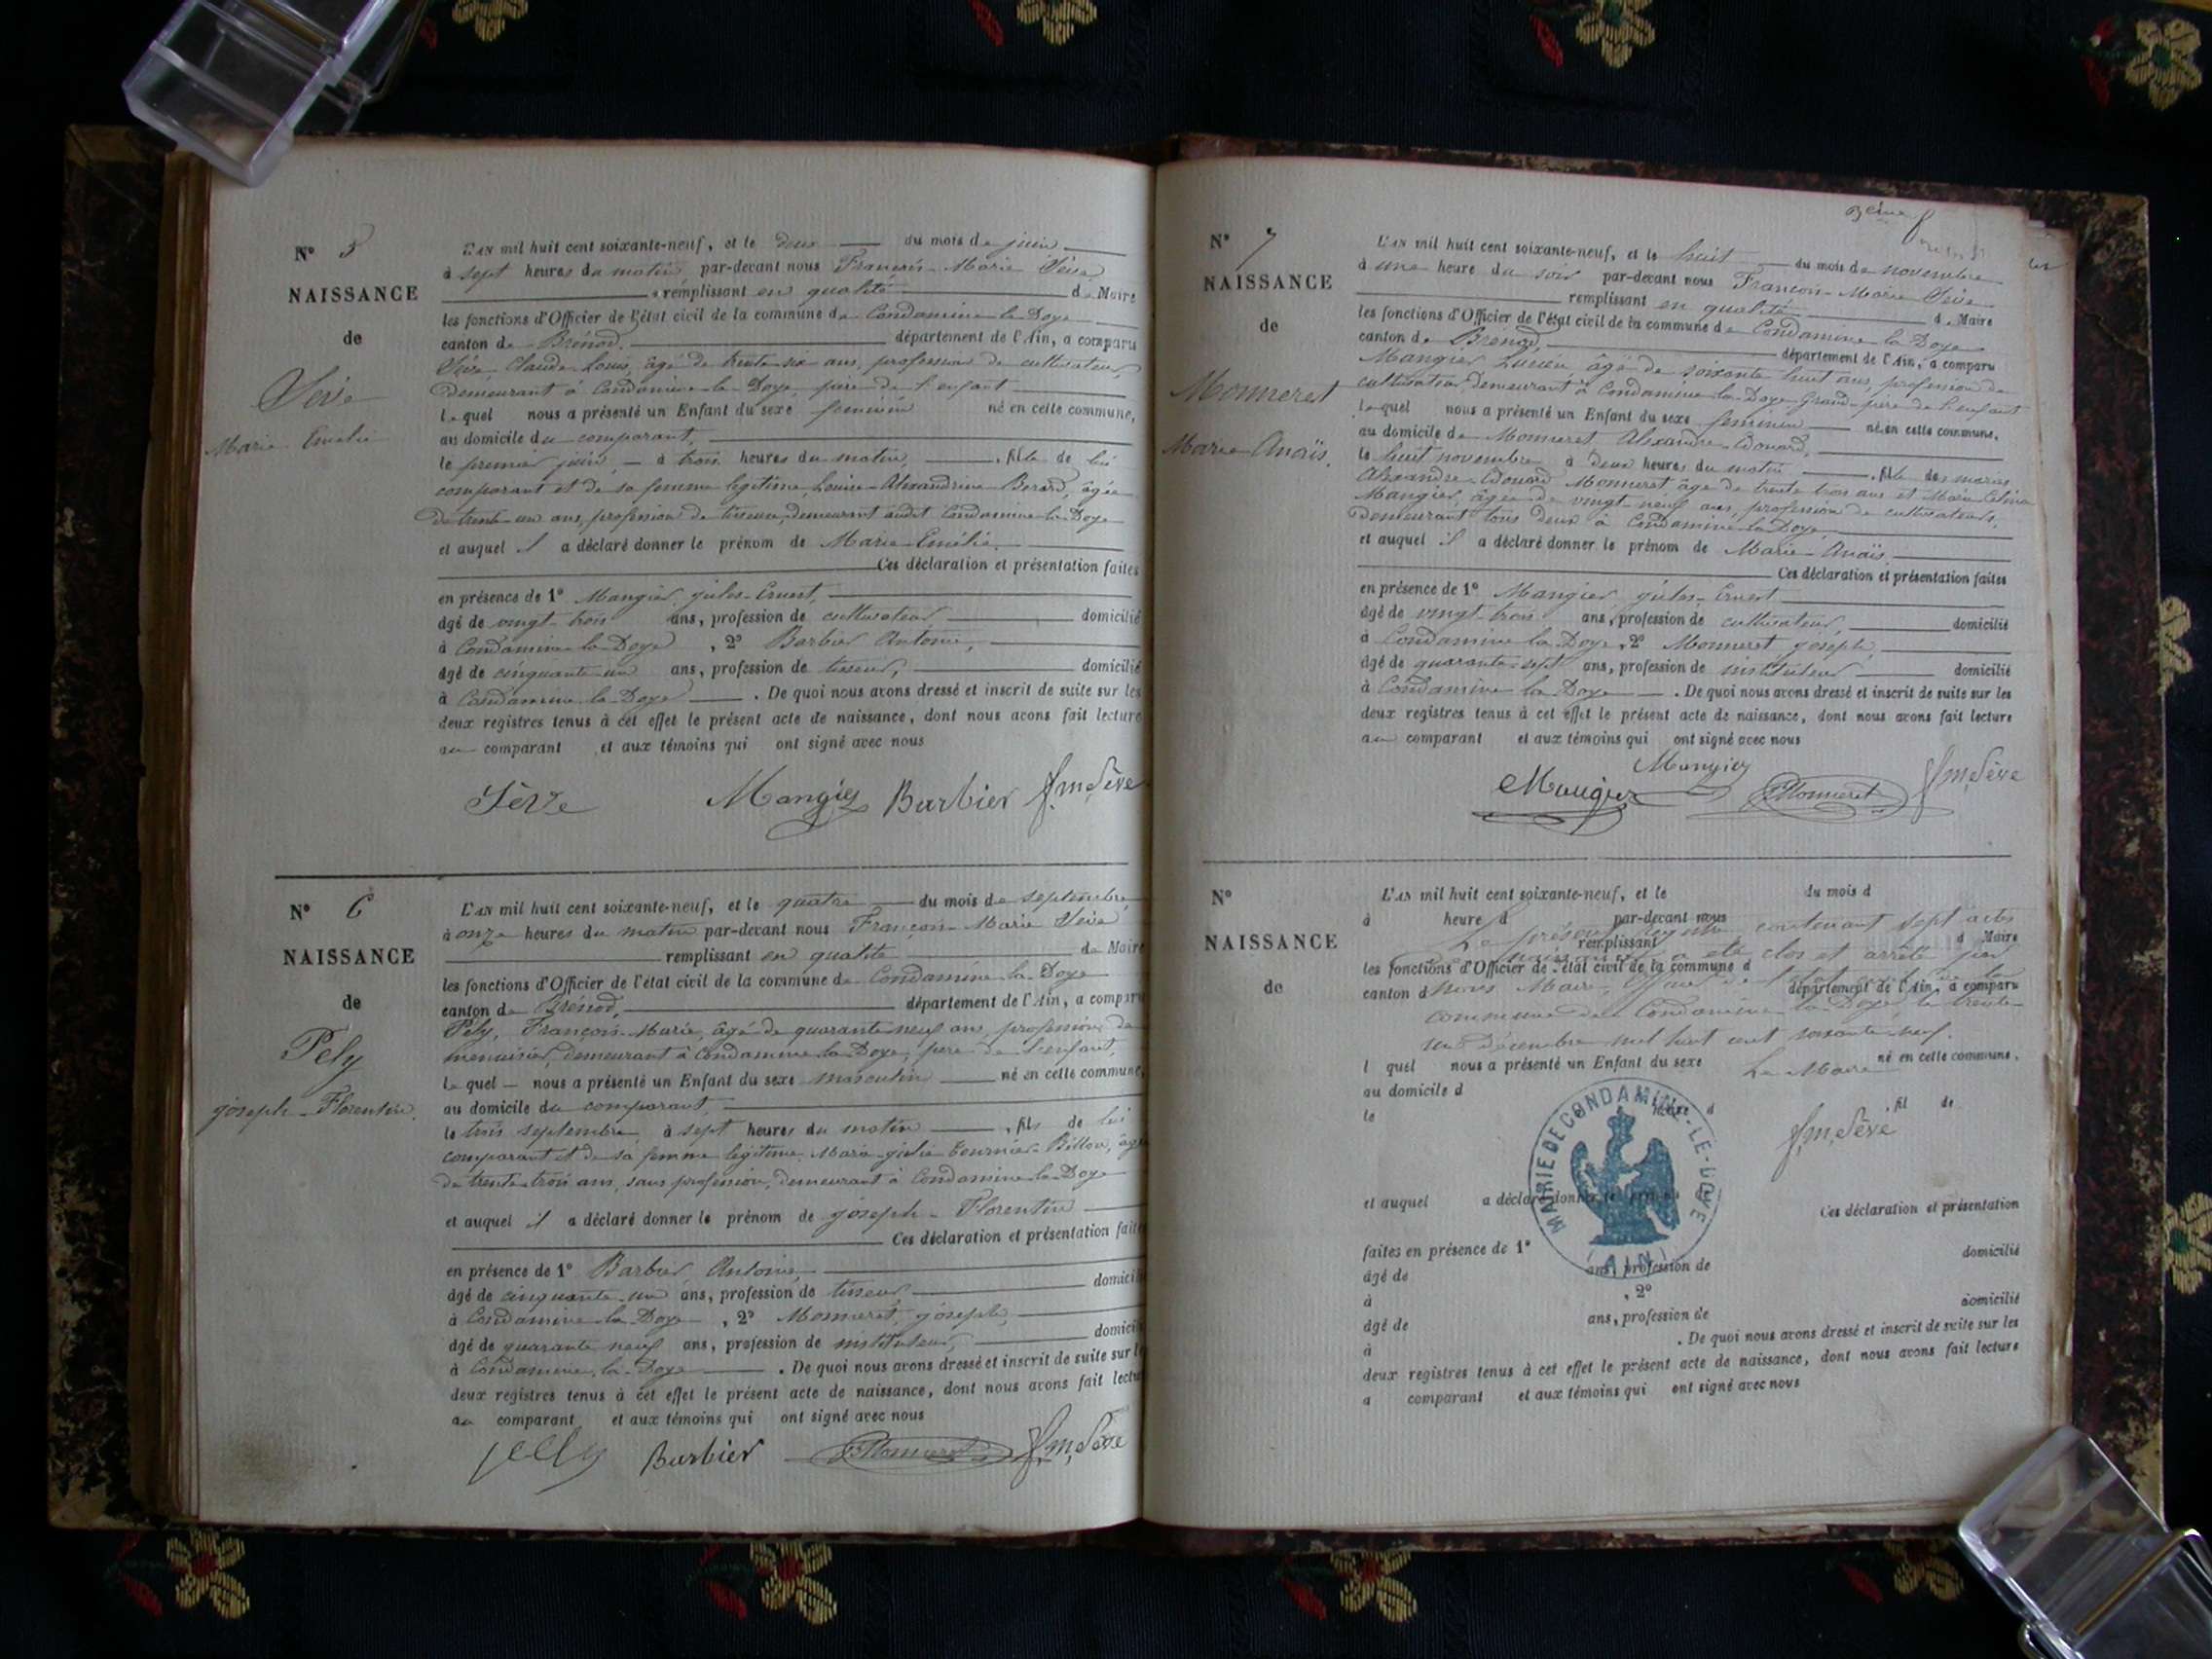 N° 5
NAISSANCE
de
Sève
Marie Emélie
L'AN mil huit cent soixante-neuf, et le deux du mois de juin
à sept heures du matin par-devant nous François-Marie Sève
remplissant en qualité de Maire
les fonctions d'Officier de l'état civil de la commune de Condamine-la-Doye
canton de Brénod, département de l'Ain, a comparu
Sève, Claude-Louis, âgé de trente six ans, profession de cultivateur,
demeurant à Condamine-la-Doye, père de l'enfant
lequel nous a présenté un Enfant du sexe féminin né en cette commune,
au domicile du comparant,
le premier juin, à trois heures du matin, fille de lui
comparant et de sa femme légitime, Louise-Alexandrine Berard, âgée
de trente-un ans, profession de tisseuse, demeurant audit Condamine-la-Doye
et auquel il a déclaré donner le prénom de Marie-Emélie.
Ces déclaration et présentation faites
en présence de 1° Mangier, jules-Ernest,
âgé de vingt-trois ans, profession de cultivateur domicilié
à Condamine-la-Doye, 2° Barbier Antoine,
âgé de cinquante-un ans, profession de tisseur, domicilié
à Condamine-la-Doye. De quoi nous avons dressé et inscrit de suite sur les
deux registres tenus à cet effet le présent acte de naissance, dont nous avons fait lecture
au comparant et aux témoins qui ont signé avec nous
Sève Mangier Barbier fmSève
N° 6
NAISSANCE
de
Pely
joseph-Florentin.
L'AN mil huit cent soixante-neuf, et le quatre du mois de septembre,
à onze heures du matin par-devant nous François-Marie Sève
remplissant en qualité de Maire
les fonctions d'Officier de l'état civil de la commune de Condamine-la-Doye
canton de Brénod, département de l'Ain, a comparu
Pely, François-Marie, âgé de quarante neuf ans, profession de
menuisier, demeurant à Condamine-la-Doye, père de l'enfant,
lequel nous a présenté un Enfant du sexe masculin né en cette commune,
au domicile du comparant,
le trois septembre, à sept heures du matin, fils de lui
comparant et de sa femme légitime, Marie-julie Tournier-Billon, âgée
de trente-trois ans, sans profession, demeurant à Condamine-la-Doye
et auquel il a déclaré donner le prénom de joseph-Florentin
Ces déclaration et présentation faites
en présence de 1° Barbier Antoine,
âgé de cinquante-un ans, profession de tisseur domicilié
à Condamine-la-Doye, 2° Monneret, joseph,
âgé de quarante neuf ans, profession de instituteur, domicilié
à Condamine-la-Doye. De quoi nous avons dressé et inscrit de suite sur les
deux registres tenus à cet effet le présent acte de naissance, dont nous avons fait lecture
au comparant et aux témoins qui ont signé avec nous
pelly Barbier Monneret fmSève
N° 7
NAISSANCE
de
Monneret
Marie-Anaïs.
L'AN mil huit cent soixante-neuf, et le huit du mois de novembre
à une heure du soir par-devant nous François-Marie Sève
remplissant en qualité de Maire
les fonctions d'Officier de l'état civil de la commune de Condamine-la-Doye
canton de Brénod, département de l'Ain, a comparu
Mangier Lucien, âgé de soixante huit ans, profession de
cultivateur, demeurant à Condamine-la-Doye Grand-père de l'enfant
lequel nous a présenté un Enfant du sexe féminin né en cette commune,
au domicile de Monneret Alexandre-Edouard,
le huit novembre à deux heures du matin, fille des mariés
Alexandre-Edouard Monneret, âgé de trente trois ans et Marie
Mangier, âgée de vingt-neuf ans, profession de cultivateurs,
demeurant tous deux à Condamine-la-Doye,
et auquel il a déclaré donner le prénom de Marie-Anaïs.
Ces déclaration et présentation faites
en présence de 1° Mangier, jules-Ernest
âgé de vingt-trois ans, profession de cultivateur, domicilié
à Condamine-la-Doye, 2° Monneret joseph,
âgé de quarante-sept ans, profession de instituteur domicilié
à Condamine-la-Doye. De quoi nous avons dressé et inscrit de suite sur les
deux registres tenus à cet effet le présent acte de naissance, dont nous avons fait lecture
au comparant et aux témoins qui ont signé avec nous
Mangier
Mangier Monneret fmSève
N°
NAISSANCE
de
L'AN mil huit cent soixante-neuf, et le du mois d
à heure d par-devant nous
Le présent registre contenant sept actes
remplissant d Maire
de naissance a été clos et arrêté par
les fonctions d'Officier de l'état civil de la commune d
nous Maire, officier de l'état civil de la
canton d département de l'Ain, a comparu
commune de Condamine-la-Doye, le trente-
un Décembre mil huit cent soixante-neuf.
l quel nous a présenté un Enfant du sexe né en cette commune,
Le Maire
au domicile d
le heure d , fil de
fmSève
MAIRIE DE CONDAMINE-LE-DOYE
(AIN)
et auquel a déclaré donner le prénom
Ces déclaration et présentation
faites en présence de 1° domicilié
âgé de ans, profession de
à , 2° domicilié
âgé de ans, profession de
à . De quoi nous avons dressé et inscrit de suite sur les
deux registres tenus à cet effet le présent acte de naissance, dont nous avons fait lecture
a comparant et aux témoins qui ont signé avec nous